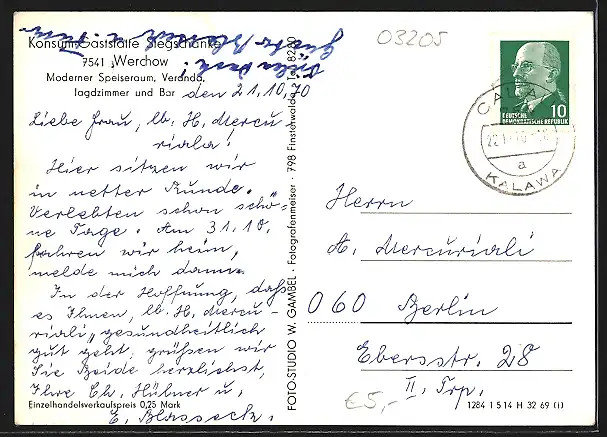 Konsum-Gaststätte Stegschänke
7541 Werchow
Moderner Speiseraum, Veranda,
Jagdzimmer und Bar
den 21.10.70
Liebe Frau, lb. H. Mercu
riala!
Hier sitzen wir
in netter Runde.
Verlebten schon schö-
ne Tage. Am 31.10.
fahren wir heim,
melde mich dann.
In der Hoffnung, daß
es Ihnen, lb. H. Mercu-
riali gesundheitlich
gut geht, grüßen wir
Sie Beide herzlichst,
Ihre Ch. Hübner u.
E. Blasseck.
Einzelhandelsverkaufspreis 0,25 Mark
FOTO-STUDIO W. GAMBEL · Fotografenmeister · 798 Finsterwalde · Tel. 8280
03205
DEUTSCHE
DEMOKRATISCHE REPUBLIK
10
CALAU
a
KALAWA
Herrn
A. Mercuriali
060 Berlin
Ebersstr. 28
II. Trp.
€5,-
1284 1 5 14 H 32 69 (i)